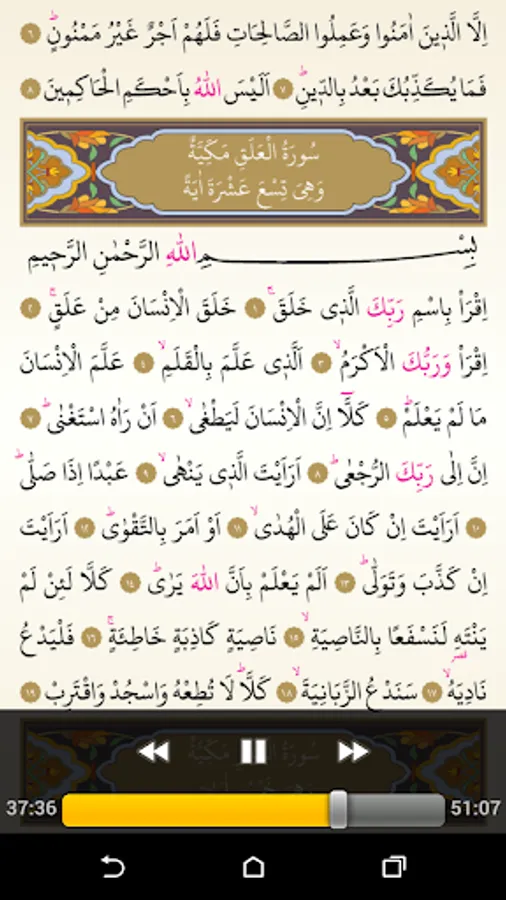 اِلَّا الَّذ۪ينَ اٰمَنُوا وَعَمِلُوا الصَّالِحَاتِ فَلَهُمْ اَجْرٌ غَيْرُ مَمْنُونٍۜ ٦
فَمَا يُكَذِّبُكَ بَعْدُ بِالدّ۪ينِۜ ٧ اَلَيْسَ اللّٰهُ بِاَحْكَمِ الْحَاكِم۪ينَ ٨
سُورَةُ الْعَلَقِ مَكِّيَّةٌ
وَهِيَ تِسْعَ عَشْرَةَ اٰيَةً
بِسْمِ اللّٰهِ الرَّحْمٰنِ الرَّح۪يمِ
اِقْرَأْ بِاسْمِ رَبِّكَ الَّذ۪ي خَلَقَۚ ١ خَلَقَ الْاِنْسَانَ مِنْ عَلَقٍۚ ٢
اِقْرَأْ وَرَبُّكَ الْاَكْرَمُۙ ٣ اَلَّذ۪ي عَلَّمَ بِالْقَلَمِۙ ٤ عَلَّمَ الْاِنْسَانَ
مَا لَمْ يَعْلَمْۜ ٥ كَلَّٓا اِنَّ الْاِنْسَانَ لَيَطْغٰىۙ ٦ اَنْ رَاٰهُ اسْتَغْنٰىۜ ٧
اِنَّ اِلٰى رَبِّكَ الرُّجْعٰىۜ ٨ اَرَاَيْتَ الَّذ۪ي يَنْهٰىۙ ٩ عَبْدًا اِذَا صَلّٰىۜ
١٠ اَرَاَيْتَ اِنْ كَانَ عَلَى الْهُدٰىۙ ١١ اَوْ اَمَرَ بِالتَّقْوٰىۜ ١٢ اَرَاَيْتَ
اِنْ كَذَّبَ وَتَوَلّٰىۜ ١٣ اَلَمْ يَعْلَمْ بِاَنَّ اللّٰهَ يَرٰىۜ ١٤ كَلَّا لَئِنْ لَمْ
يَنْتَهِ لَنَسْفَعًا بِالنَّاصِيَةِۙ ١٥ نَاصِيَةٍ كَاذِبَةٍ خَاطِئَةٍۚ ١٦ فَلْيَدْعُ
نَادِيَهُۙ ١٧ سَنَدْعُ الزَّبَانِيَةَۙ ١٨ كَلَّاۜ لَا تُطِعْهُ وَاسْجُدْ وَاقْتَرِبْ ١٩
37:36 51:07